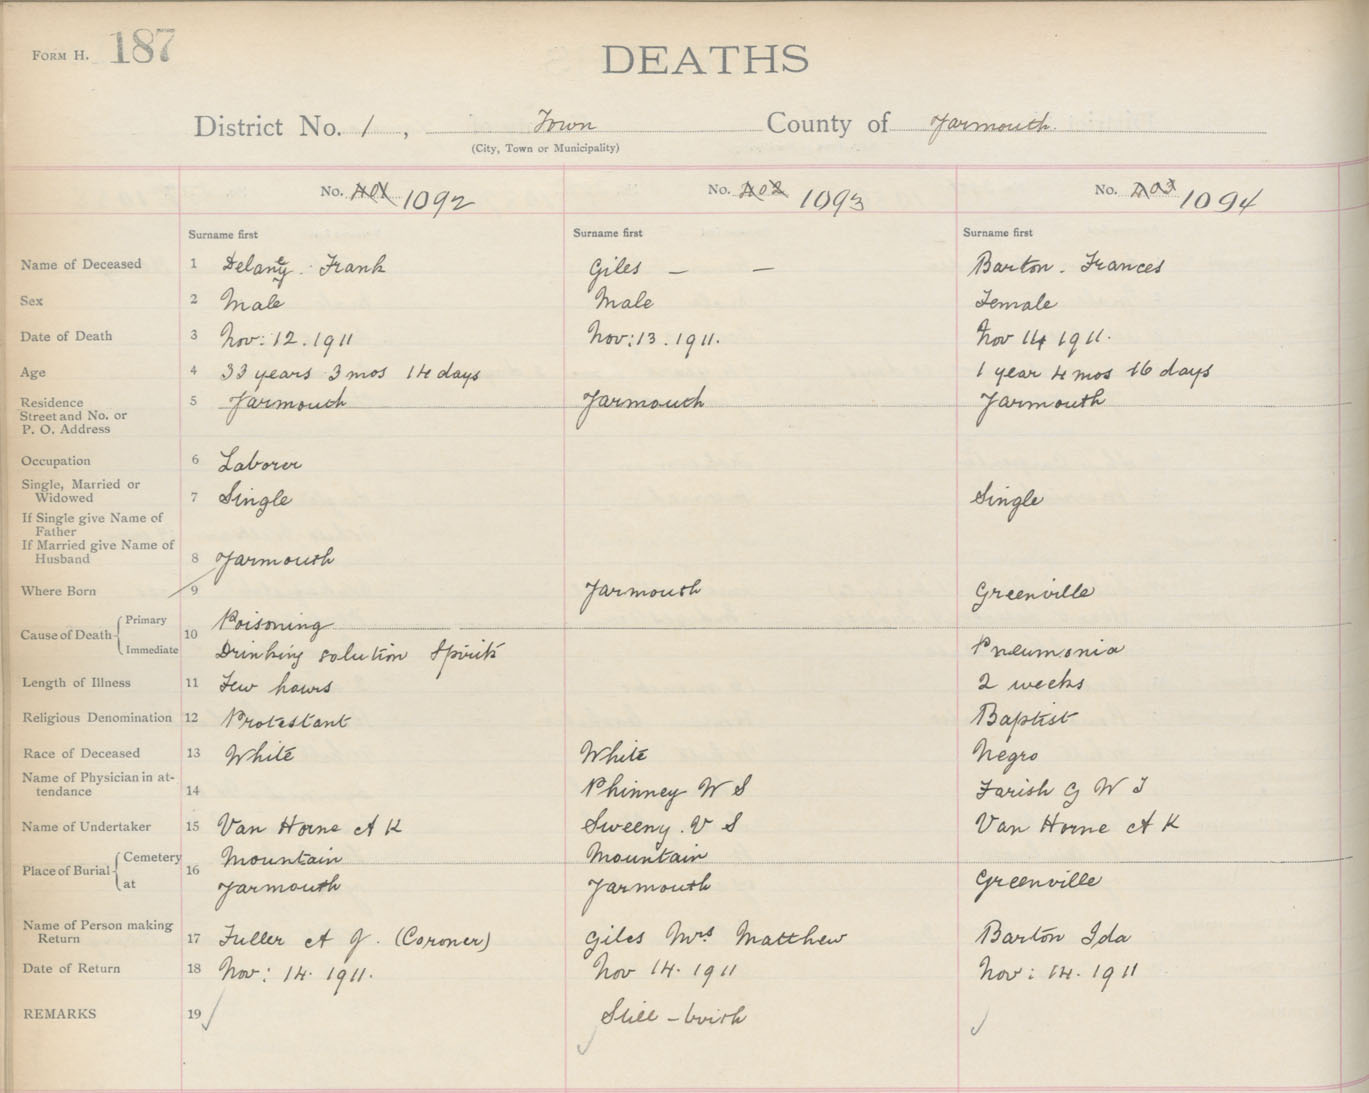 FORM H. 187
DEATHS
District No. 1, Town County of Yarmouth.
(City, Town or Municipality)
No. 401 1092 No. 402 1093 No. 403 1094
Surname first Surname first Surname first
Name of Deceased 1 Delaney. Frank Giles — — Barton. Frances
Sex 2 Male Male Female
Date of Death 3 Nov: 12. 1911 Nov: 13. 1911. Nov 14 1911.
Age 4 33 years 3 mos 14 days 1 year 4 mos 16 days
Residence
Street and No. or
P. O. Address 5 Yarmouth Yarmouth Yarmouth
Occupation 6 Laborer
Single, Married or
Widowed 7 Single Single
If Single give Name of
Father
If Married give Name of
Husband 8 Yarmouth
Where Born 9 Yarmouth Greenville
Cause of Death Primary 10 Poisoning
Immediate Drinking solution Spirits Pneumonia
Length of Illness 11 Few hours 2 weeks
Religious Denomination 12 Protestant Baptist
Race of Deceased 13 White White Negro
Name of Physician in at-
tendance 14 Phinney W S Farish G W T
Name of Undertaker 15 Van Horne A K Sweeny. V S Van Horne A K
Place of Burial Cemetery 16 Mountain Mountain
at Yarmouth Yarmouth Greenville
Name of Person making
Return 17 Fuller A J. (Coroner) Giles Mrs Matthew Barton Ida
Date of Return 18 Nov: 14. 1911. Nov 14. 1911 Nov: 14. 1911
REMARKS 19 Still-birth